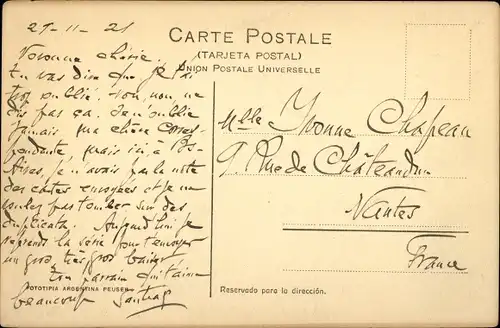 29-11-21
CARTE POSTALE
(TARJETA POSTAL)
UNION POSTALE UNIVERSELLE
Yvonne chérie,
tu vas dire que je t'ai
trop oublié. Non, non, ne
dis pas ça. J'en oublie
jamais ma chère corres-
pondante, mais ici, à Bs-
Aires, je n'avais pas la liste
des cartes envoyées et je ne
voulais pas tomber sur des
duplicata. Aujourd'hui je
reprends la série pour t'envoyer
un gros, très gros baiser!
Ton parrain qui t'aime
beaucoup Santiag
FOTOTIPIA ARGENTINA PEUSER
Mlle Yvonne Chapeau
9. Rue de Châteaudun
Nantes
France
Reservado para la dirección.